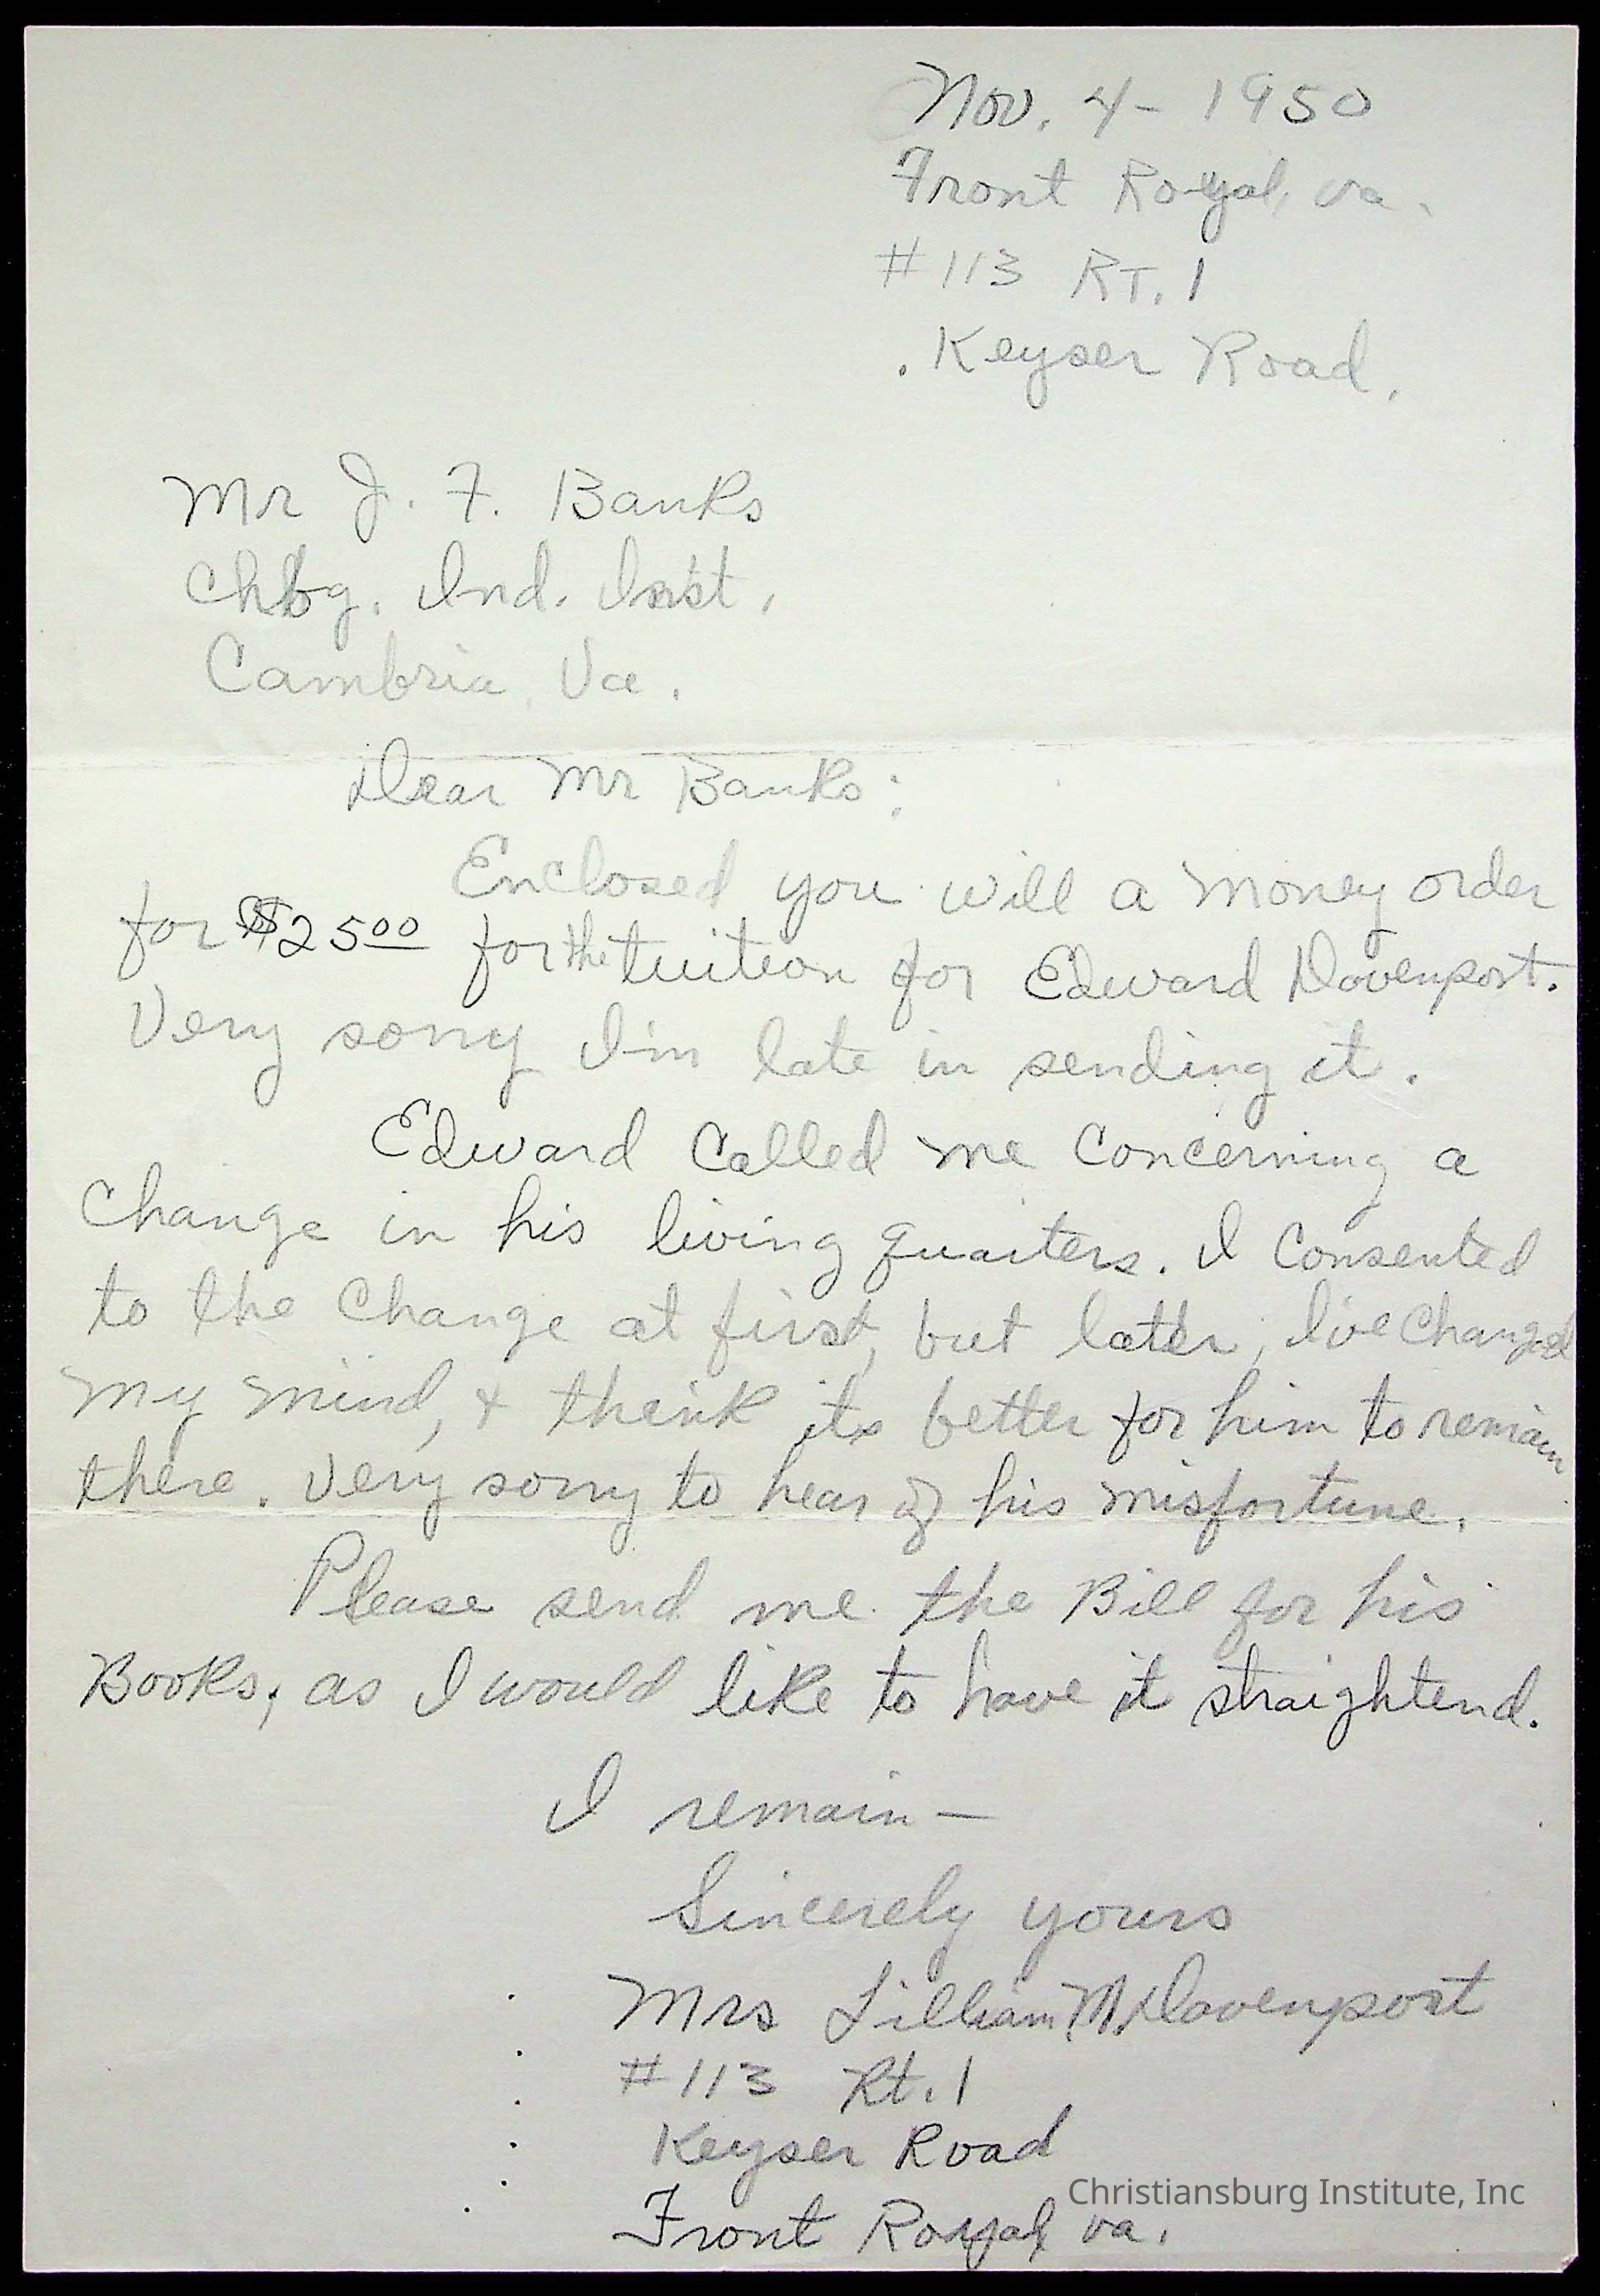 Nov. 4- 1950
Front Royal, Va.
#113 RT. 1
. Keyser Road,
Mr J. F. Banks
Chbg. Ind. Inst,
Cambria, Va.
Dear Mr Banks:
Enclosed you will a money order
for $25.00 for the tuition for Edward Davenport.
Very sorry I'm late in sending it.
Edward called me concerning a
change in his living quarters. I consented
to the change at first, but later, I've changed
my mind, & think its better for him to remain
there. Very sorry to hear of his misfortune.
Please send me the Bill for his
Books, as I would like to have it straightend.
I remain—
Sincerely yours
Mrs Lillian M. Davenport
#113 Rt. 1
Keyser Road
Front Royal, Va.
Christiansburg Institute, Inc